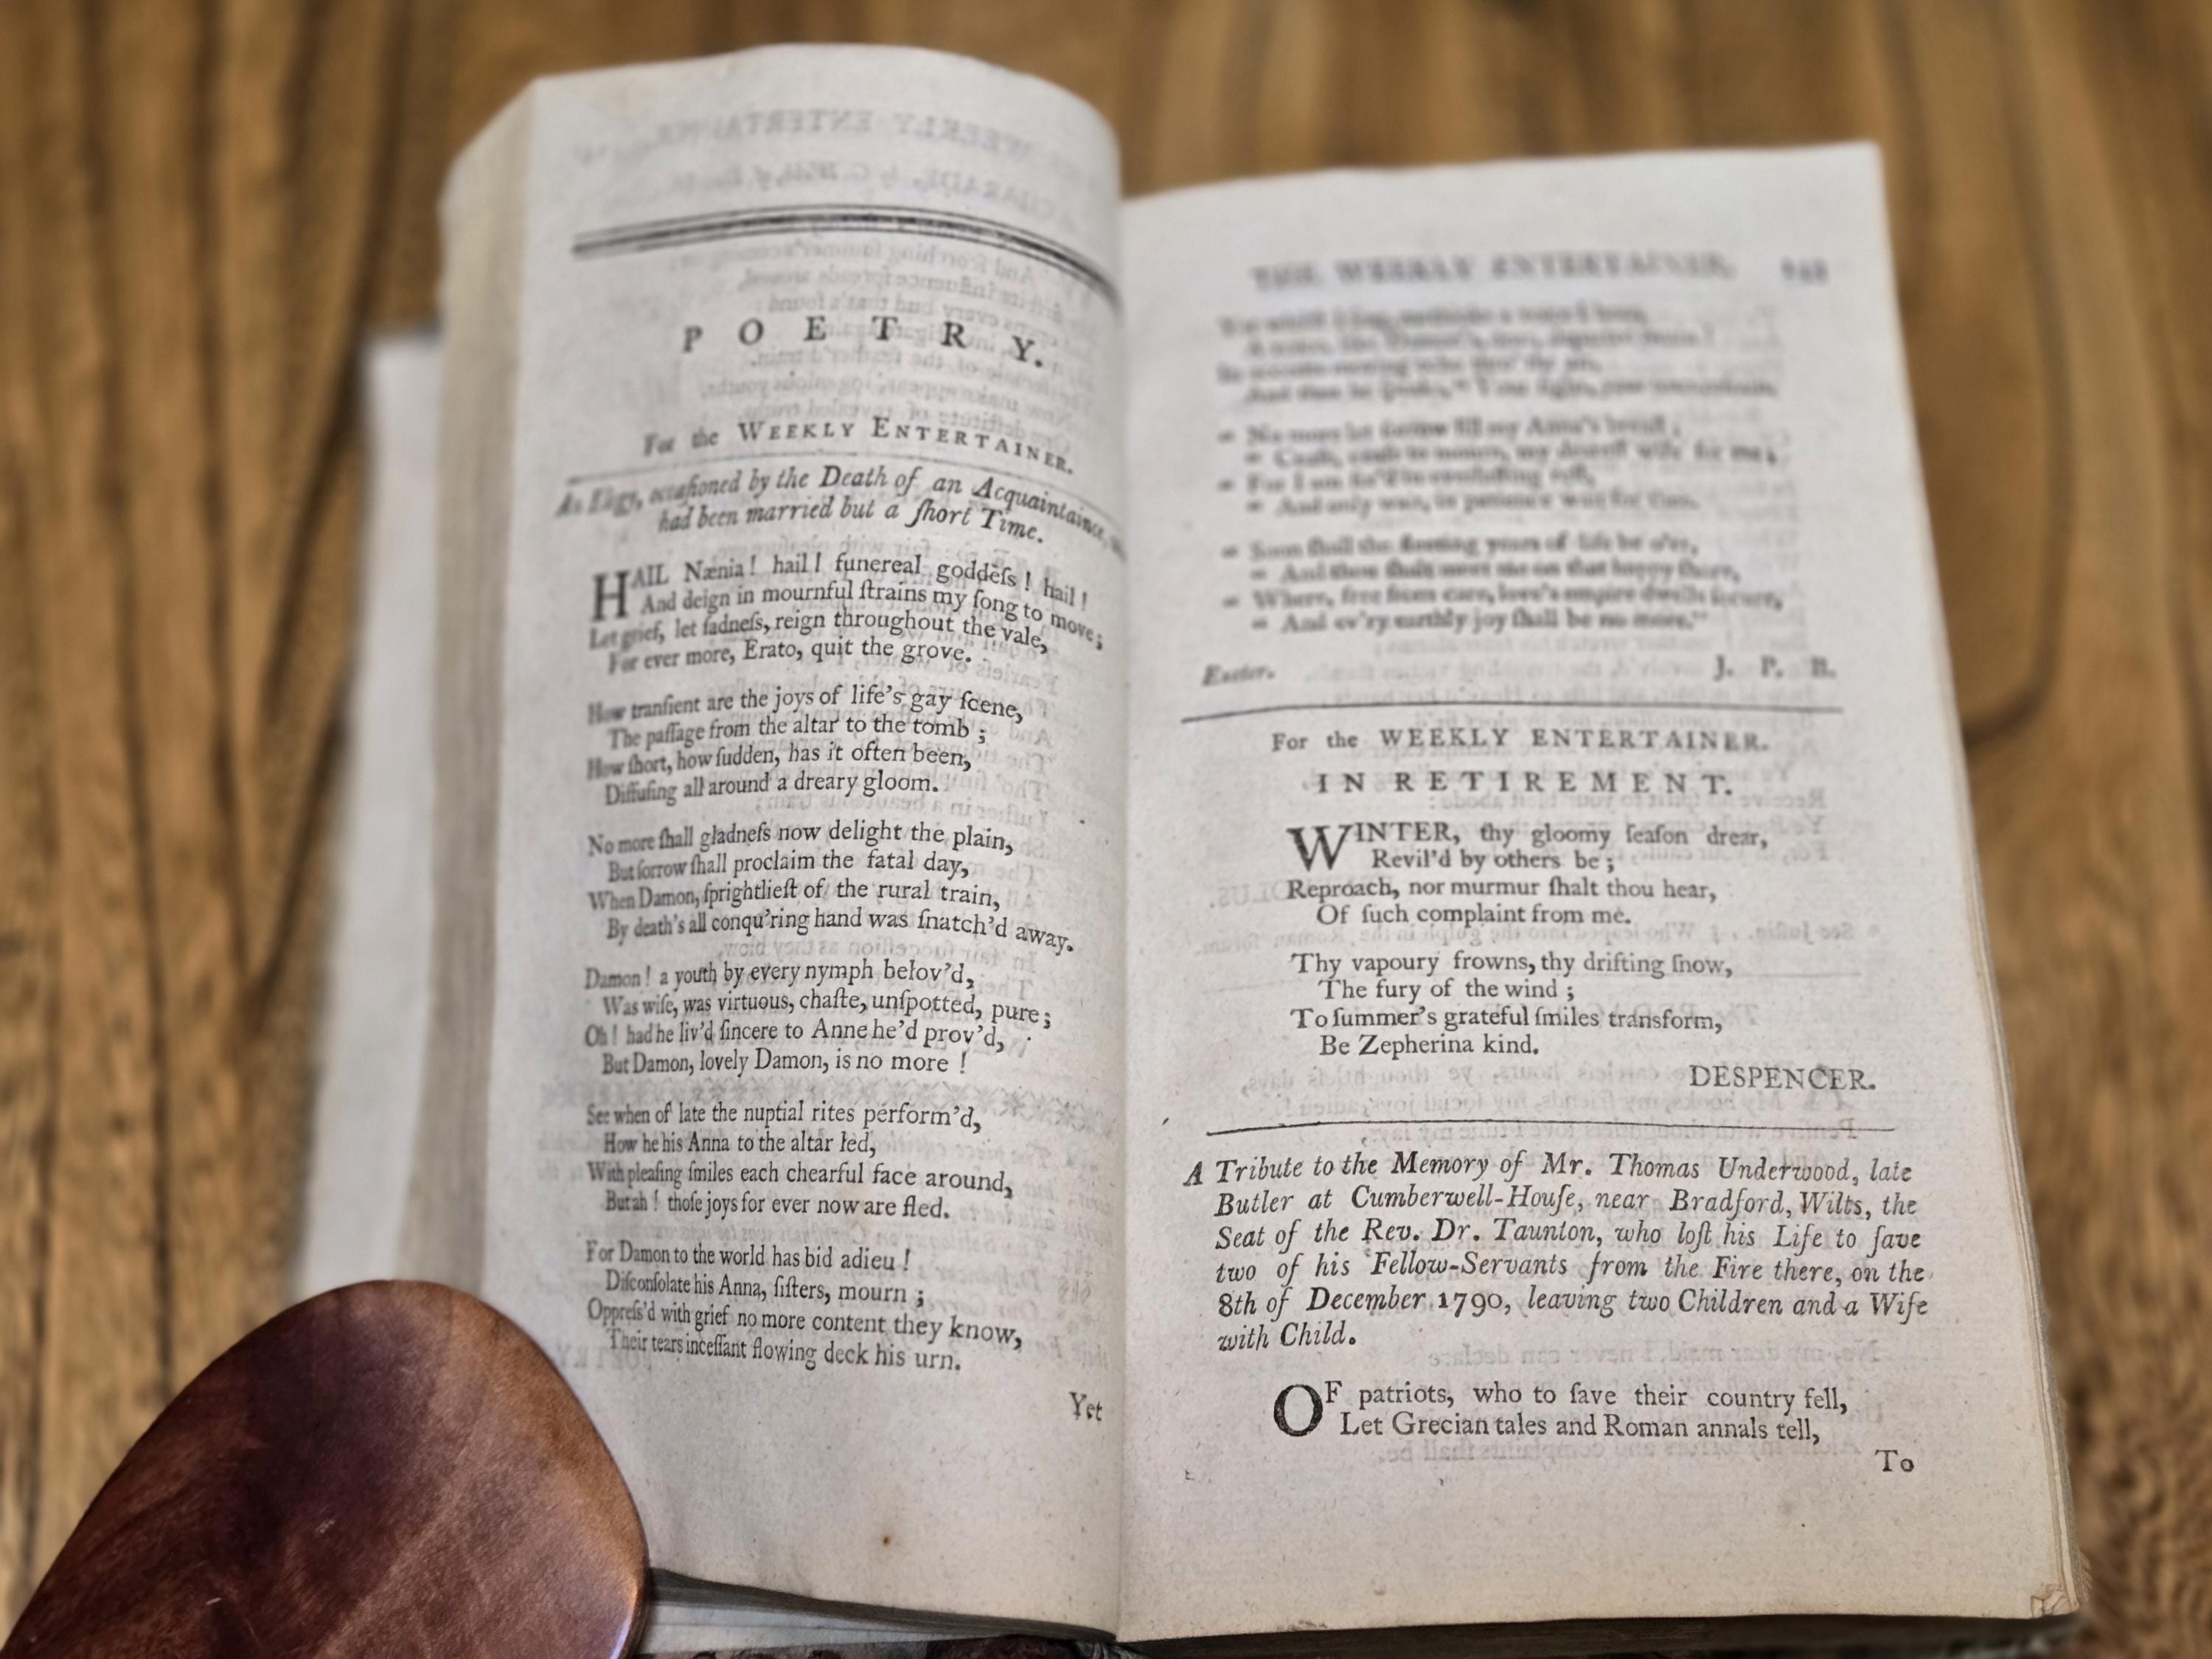 POETRY.
For the WEEKLY ENTERTAINER.
An Elegy, occaſioned by the Death of an Acquaintance,
had been married but a ſhort Time.
HAIL Nænia! hail! funereal goddeſs! hail!
And deign in mournful ſtrains my ſong to move;
Let grief, let ſadneſs, reign throughout the vale,
For ever more, Erato, quit the grove.
How tranſient are the joys of life's gay ſcene,
The paſſage from the altar to the tomb;
How ſhort, how ſudden, has it often been,
Diffuſing all around a dreary gloom.
No more ſhall gladneſs now delight the plain,
But ſorrow ſhall proclaim the fatal day,
When Damon, ſprightlieſt of the rural train,
By death's all conqu'ring hand was ſnatch'd away.
Damon! a youth by every nymph belov'd,
Was wiſe, was virtuous, chaſte, unſpotted, pure;
Oh! had he liv'd ſincere to Anne he'd prov'd,
But Damon, lovely Damon, is no more!
See when of late the nuptial rites perform'd,
How he his Anna to the altar led,
With pleaſing ſmiles each chearful face around,
But ah! thoſe joys for ever now are fled.
For Damon to the world has bid adieu!
Diſconſolate his Anna, ſiſters, mourn;
Oppreſs'd with grief no more content they know,
Their tears inceſſant flowing deck his urn.
Yet
THE WEEKLY ENTERTAINER.
" No more let ſorrow fill my Anna's breaſt;
" Ceaſe, ceaſe to mourn, my deareſt wife for me;
" For I am
" And only wait, in patience wait for thee.
" Soon ſhall the fleeting years of life be o'er,
" And thou ſhalt meet me on that happy ſhore,
" Where, free from care, love's empire dwells ſecure,
" And ev'ry earthly joy ſhall be no more."
Exeter. J. P. B.
For the WEEKLY ENTERTAINER.
IN RETIREMENT.
WINTER, thy gloomy ſeaſon drear,
Revil'd by others be;
Reproach, nor murmur ſhalt thou hear,
Of ſuch complaint from me.
Thy vapoury frowns, thy drifting ſnow,
The fury of the wind;
To ſummer's grateful ſmiles transform,
Be Zepherina kind.
DESPENCER.
A Tribute to the Memory of Mr. Thomas Underwood, late
Butler at Cumberwell-Houſe, near Bradford, Wilts, the
Seat of the Rev. Dr. Taunton, who loſt his Life to ſave
two of his Fellow-Servants from the Fire there, on the
8th of December 1790, leaving two Children and a Wife
with Child.
OF patriots, who to ſave their country fell,
Let Grecian tales and Roman annals tell,
To